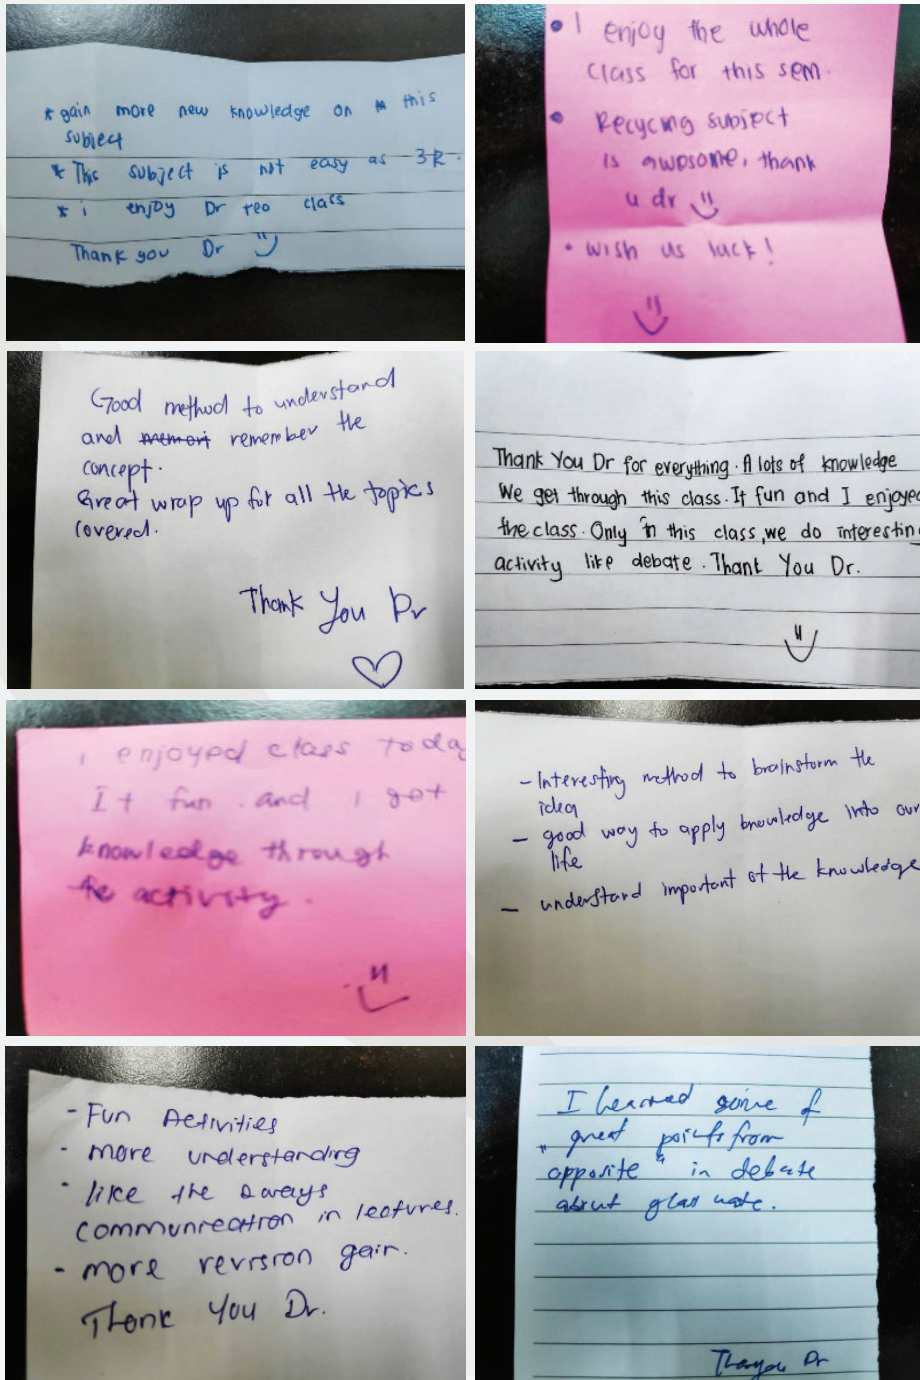 * gain more new knowledge on this
subject
* This subject is not easy as 3R.
* i enjoy Dr teo class
Thank you Dr
• I enjoy the whole
class for this sem.
• Recycing subject
is awesome, thank
u dr
• wish us luck!
Good method to understand
and memori remember the
concept.
Great wrap up for all the topics
covered.
Thank You Dr
Thank You Dr for everything. A lots of knowledge
We get through this class. It fun and I enjoyed
the class. Only in this class, we do interestin
activity like debate. Thank You Dr.
i enjoyed class toda
It fun and i got
knowledge through
the activity.
- Interesting method to brainstorm the
idea
- good way to apply knowledge into our
life
- understand important of the knowledge
- Fun Activities
- more understanding
- like the 2 ways
communication in lectures.
- more revision gain.
Thank You Dr.
I learned some of
"great points from
opposite" in debate
about glass waste.
Thank you Dr